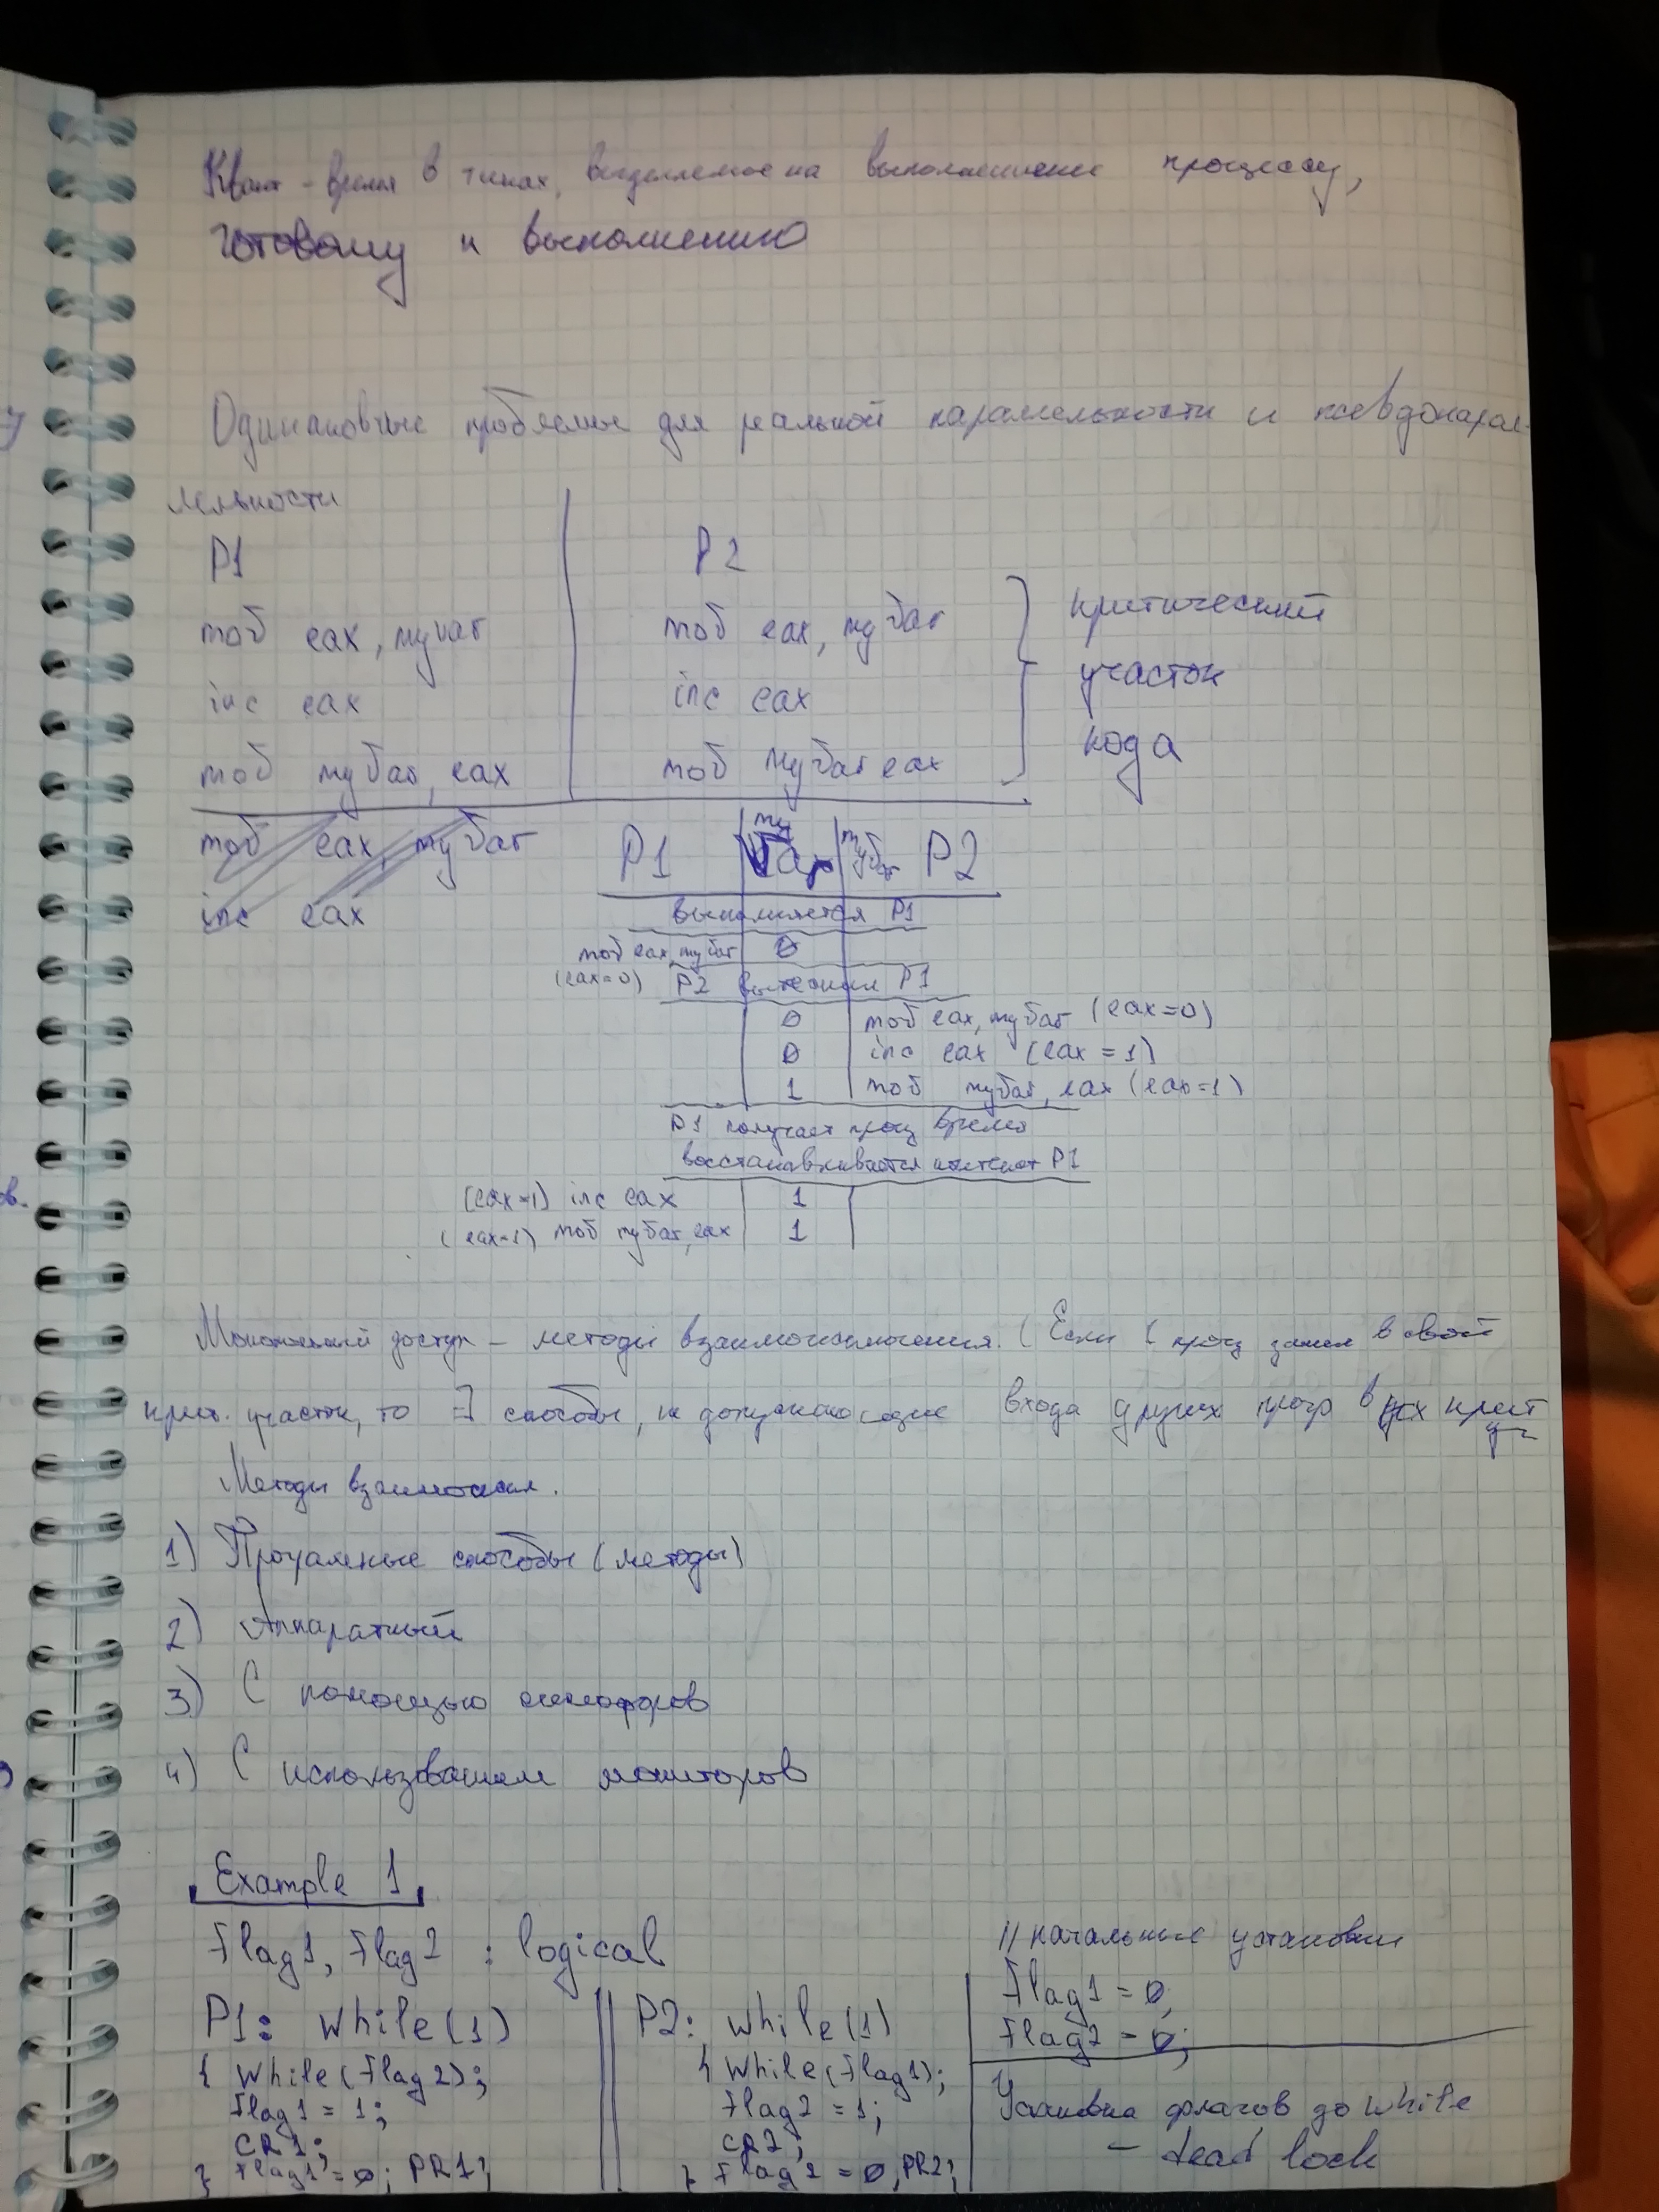 Квант - время в тиках, выделяемое на выполнение процессу,
готовому к выполнению
Одинаковые проблемы для реальной параллельности и псевдопарал-
лельности
P1 P2
mov eax, myvar mov eax, myvar критический
inc eax inc eax участок
mov myvar, eax mov myvar eax кода
mov eax, myvar P1 my var myvar P2
inc eax выполняется P1
mov eax, myvar 0
(eax=0) P2 вытеснил P1
0 mov eax, myvar (eax=0)
0 inc eax (eax = 1)
1 mov myvar, eax (eax=1)
P1 получает проц время
восстанавливается контекст P1
(eax=1) inc eax 1
(eax=1) mov myvar, eax 1
Монопольный доступ - методы взаимоисключения. (Если 1 проц зашел в свой
крит. участок, то ∃ способы, не допускающие входа других проц в их крит
уч
Методы взаимоискл.
1) Програмные способы (методы)
2) Аппаратный
3) С помощью семафоров
4) С использованием мониторов
Example 1
Flag1, Flag2 : logical
// начальные установки
Flag1 = 0;
Flag2 = 0;
P1: while(1) P2: while(1)
{ while(Flag2); { while(Flag1);
Flag1 = 1; Flag2 = 1;
CR1; CR2;
} Flag1 = 0; PR1; } Flag2 = 0; PR2;
Установка флагов до while
- dead lock